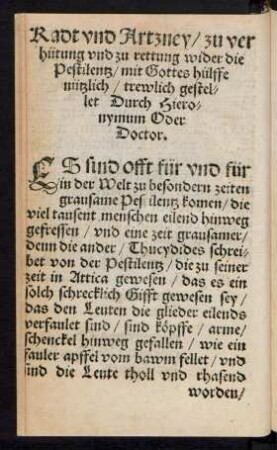 Radt vnd Artzney / zu ver
hütung vnd zu rettung wider die
Pestilentz / mit Gottes hülffe
nützlich / trewlich gestel-
let Durch Hiero-
nymum Oder
Doctor.
ES sind offt für vnd für
in der Welt zu besondern zeiten
grausame Pestilentz komen / die
viel tausent menschen eilend hinweg
gefressen / vnd eine zeit grausamer /
denn die ander / Thucydides schrei-
bet von der Pestilentz / die zu seiner
zeit in Attica gewesen / das es ein
solch schrecklich Gifft gewesen sey /
das den Leuten die glieder eilends
verfaulet sind / sind köpffe / arme /
schenckel hinweg gefallen / wie ein
fauler apffel vom bawm fellet / vnd
sind die Leute tholl vnd rhasend
worden /